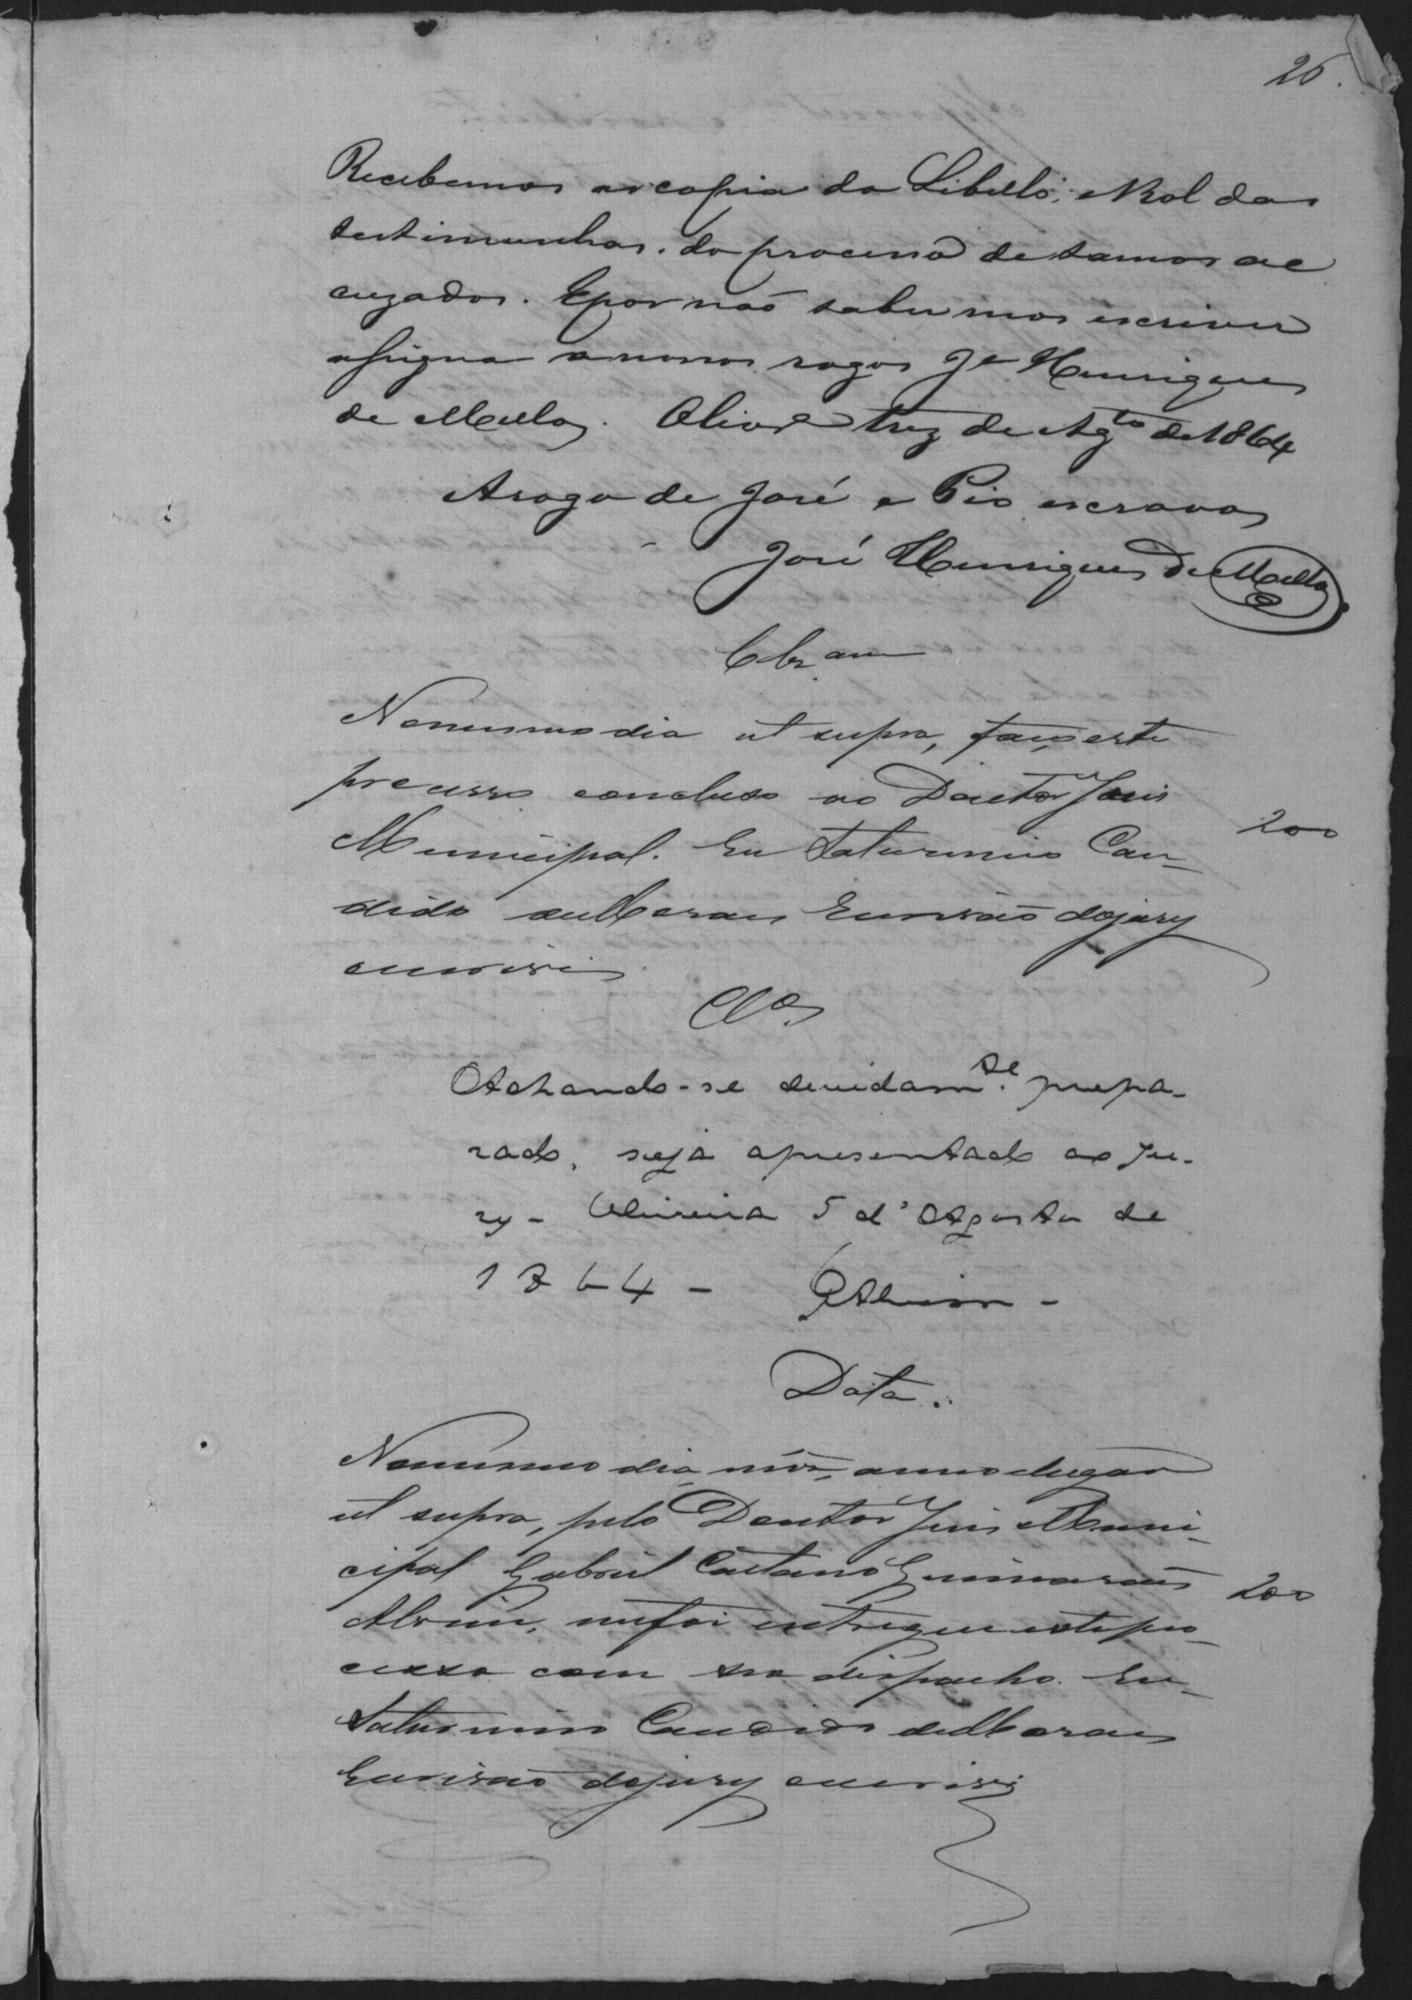 26.
Recebemos as copia do Libello, e Rol das
testimunhas. do processo de samos ac
cuzados. E por naõ sabermos escrever
assigna a nossos rogos Je Henriques
de Mello. Olivra trez de Agto de 1864
A rogo de José e Pio escravos
José Henriques de Mello
Clzam
No mesmo dia ut supra, faço este
processo concluso ao Doutor Juis
Municipal. Eu Saturnino Can-
200
dido de Moraes Escrivão do jury
escrivi
Clos
Achando-se devidamte. prepa-
rado, seja apresentado ao Ju-
ry - Oliveira 5 d'Agosto de
1864 - GAlvim -
Data.
No mesmo dia, mês, anno e lugar
ut supra, pelo Doutor Juis Muni-
cipal Gabriel Caetano Guimaraẽs
200
Alvim, me foi entregue este pro-
cesso com seo dispacho. Eu
Saturnino Candido de Moraes
Escrivão do jury escrivi